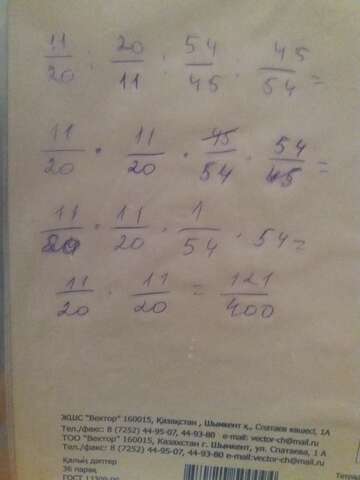 11/20 : 20/11 : 54/45 : 45/54 =
11/20 · 11/20 · 45/54 · 54/45 =
11/20 · 11/20 · 1/54 · 54 =
11/20 · 11/20 = 121/400
ЖШС "Вектор" 160015, Қазақстан , Шымкент қ., Спатаев көшесі, 1А
Тел./факс: 8 (7252) 44-95-07, 44-93-80 e-mail: vector-ch@mail.ru
ТОО "Вектор" 160015, Казахстан г. Шымкент, ул. Спатаева, 1 А
Тел./факс: 8 (7252) 44-95-07, 44-93-80 e-mail: vector-ch@mail.ru
Қалың дәптер
36 парақ
ГОСТ 13309-90